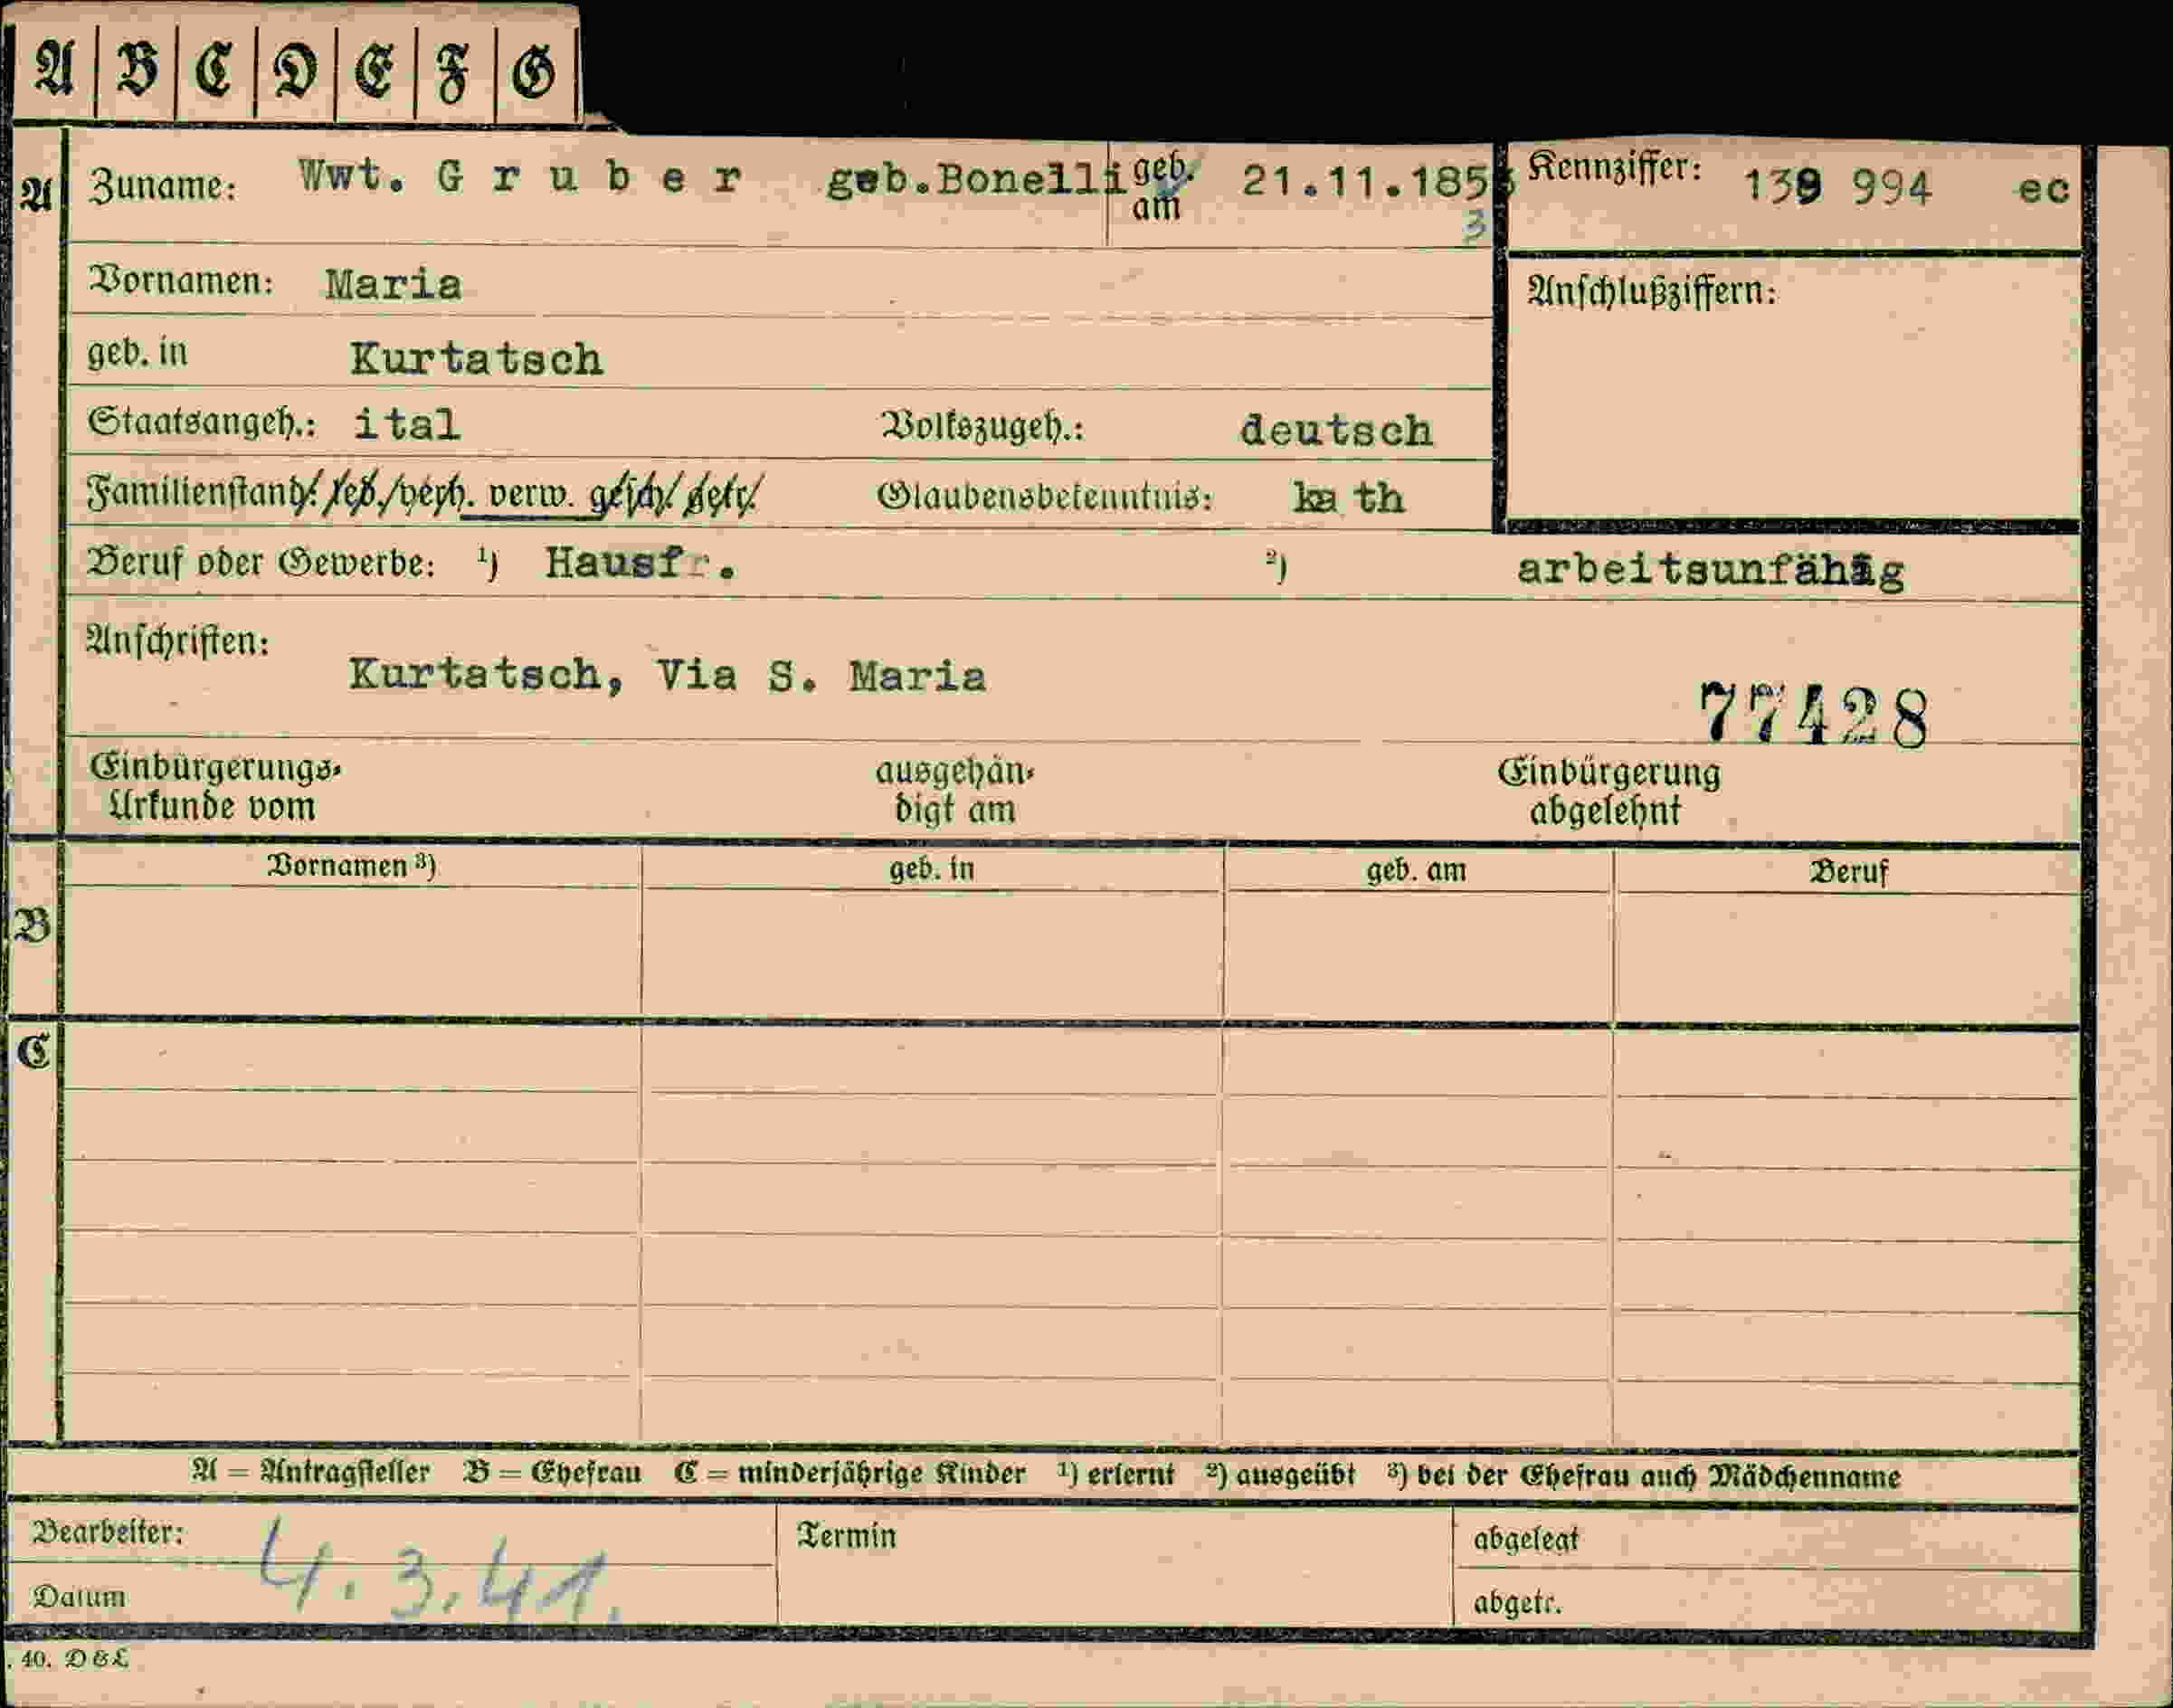 A B C D E F G
A Zuname: Wwt. G r u b e r geb.Bonelli geb. am 21.11.1853 Kennziffer: 139 994 ec
3
Vornamen: Maria
Anschlußziffern:
geb. in Kurtatsch
Staatsangeh.: ital Volkszugeh.: deutsch
Familienstand: led. verh. verw. gesch. getr. Glaubensbekenntnis: ka th
Beruf oder Gewerbe: ¹) Hausfr. ²) arbeitsunfähig
Anschriften:
Kurtatsch, Via S. Maria
77428
Einbürgerungs- ausgehän- Einbürgerung
Urkunde vom digt am abgelehnt
Vornamen ³) geb. in geb. am Beruf
B
C
A = Antragsteller B = Ehefrau C = minderjährige Kinder ¹) erlernt ²) ausgeübt ³) bei der Ehefrau auch Mädchenname
Bearbeiter: Termin abgelegt
4.3.41.
Datum abgetr.
. 40. D & L